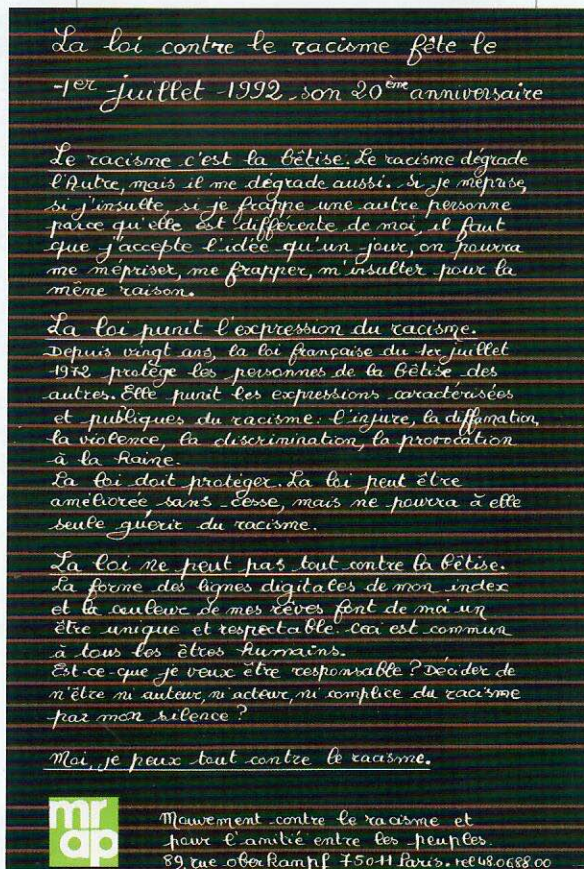 La loi contre le racisme fête le
1er juillet 1992 son 20ème anniversaire
Le racisme c'est la bêtise. Le racisme dégrade
l'Autre, mais il me dégrade aussi. Si je méprise,
si j'insulte, si je frappe une autre personne
parce qu'elle est différente de moi, il faut
que j'accepte l'idée qu'un jour, on pourra
me mépriser, me frapper, m'insulter pour la
même raison.
La loi punit l'expression du racisme.
Depuis vingt ans, la loi française du 1er juillet
1972 protège les personnes de la bêtise des
autres. Elle punit les expressions caractérisées
et publiques du racisme : l'injure, la diffamation,
la violence, la discrimination, la provocation
à la haine.
La loi doit protéger. La loi peut être
améliorée sans cesse, mais ne pourra à elle
seule guérir du racisme.
La loi ne peut pas tout contre la bêtise.
La forme des lignes digitales de mon index
et la couleur de mes rêves font de moi un
être unique et respectable. Ceci est commun
à tous les êtres humains.
Est-ce que je veux être responsable ? Décider de
n'être ni auteur, ni acteur, ni complice du racisme
par mon silence ?
Moi, je peux tout contre le racisme.
mr
ap
Mouvement contre le racisme et
pour l'amitié entre les peuples.
89, rue oberkampf 75011 Paris. tel 48.06.88.00